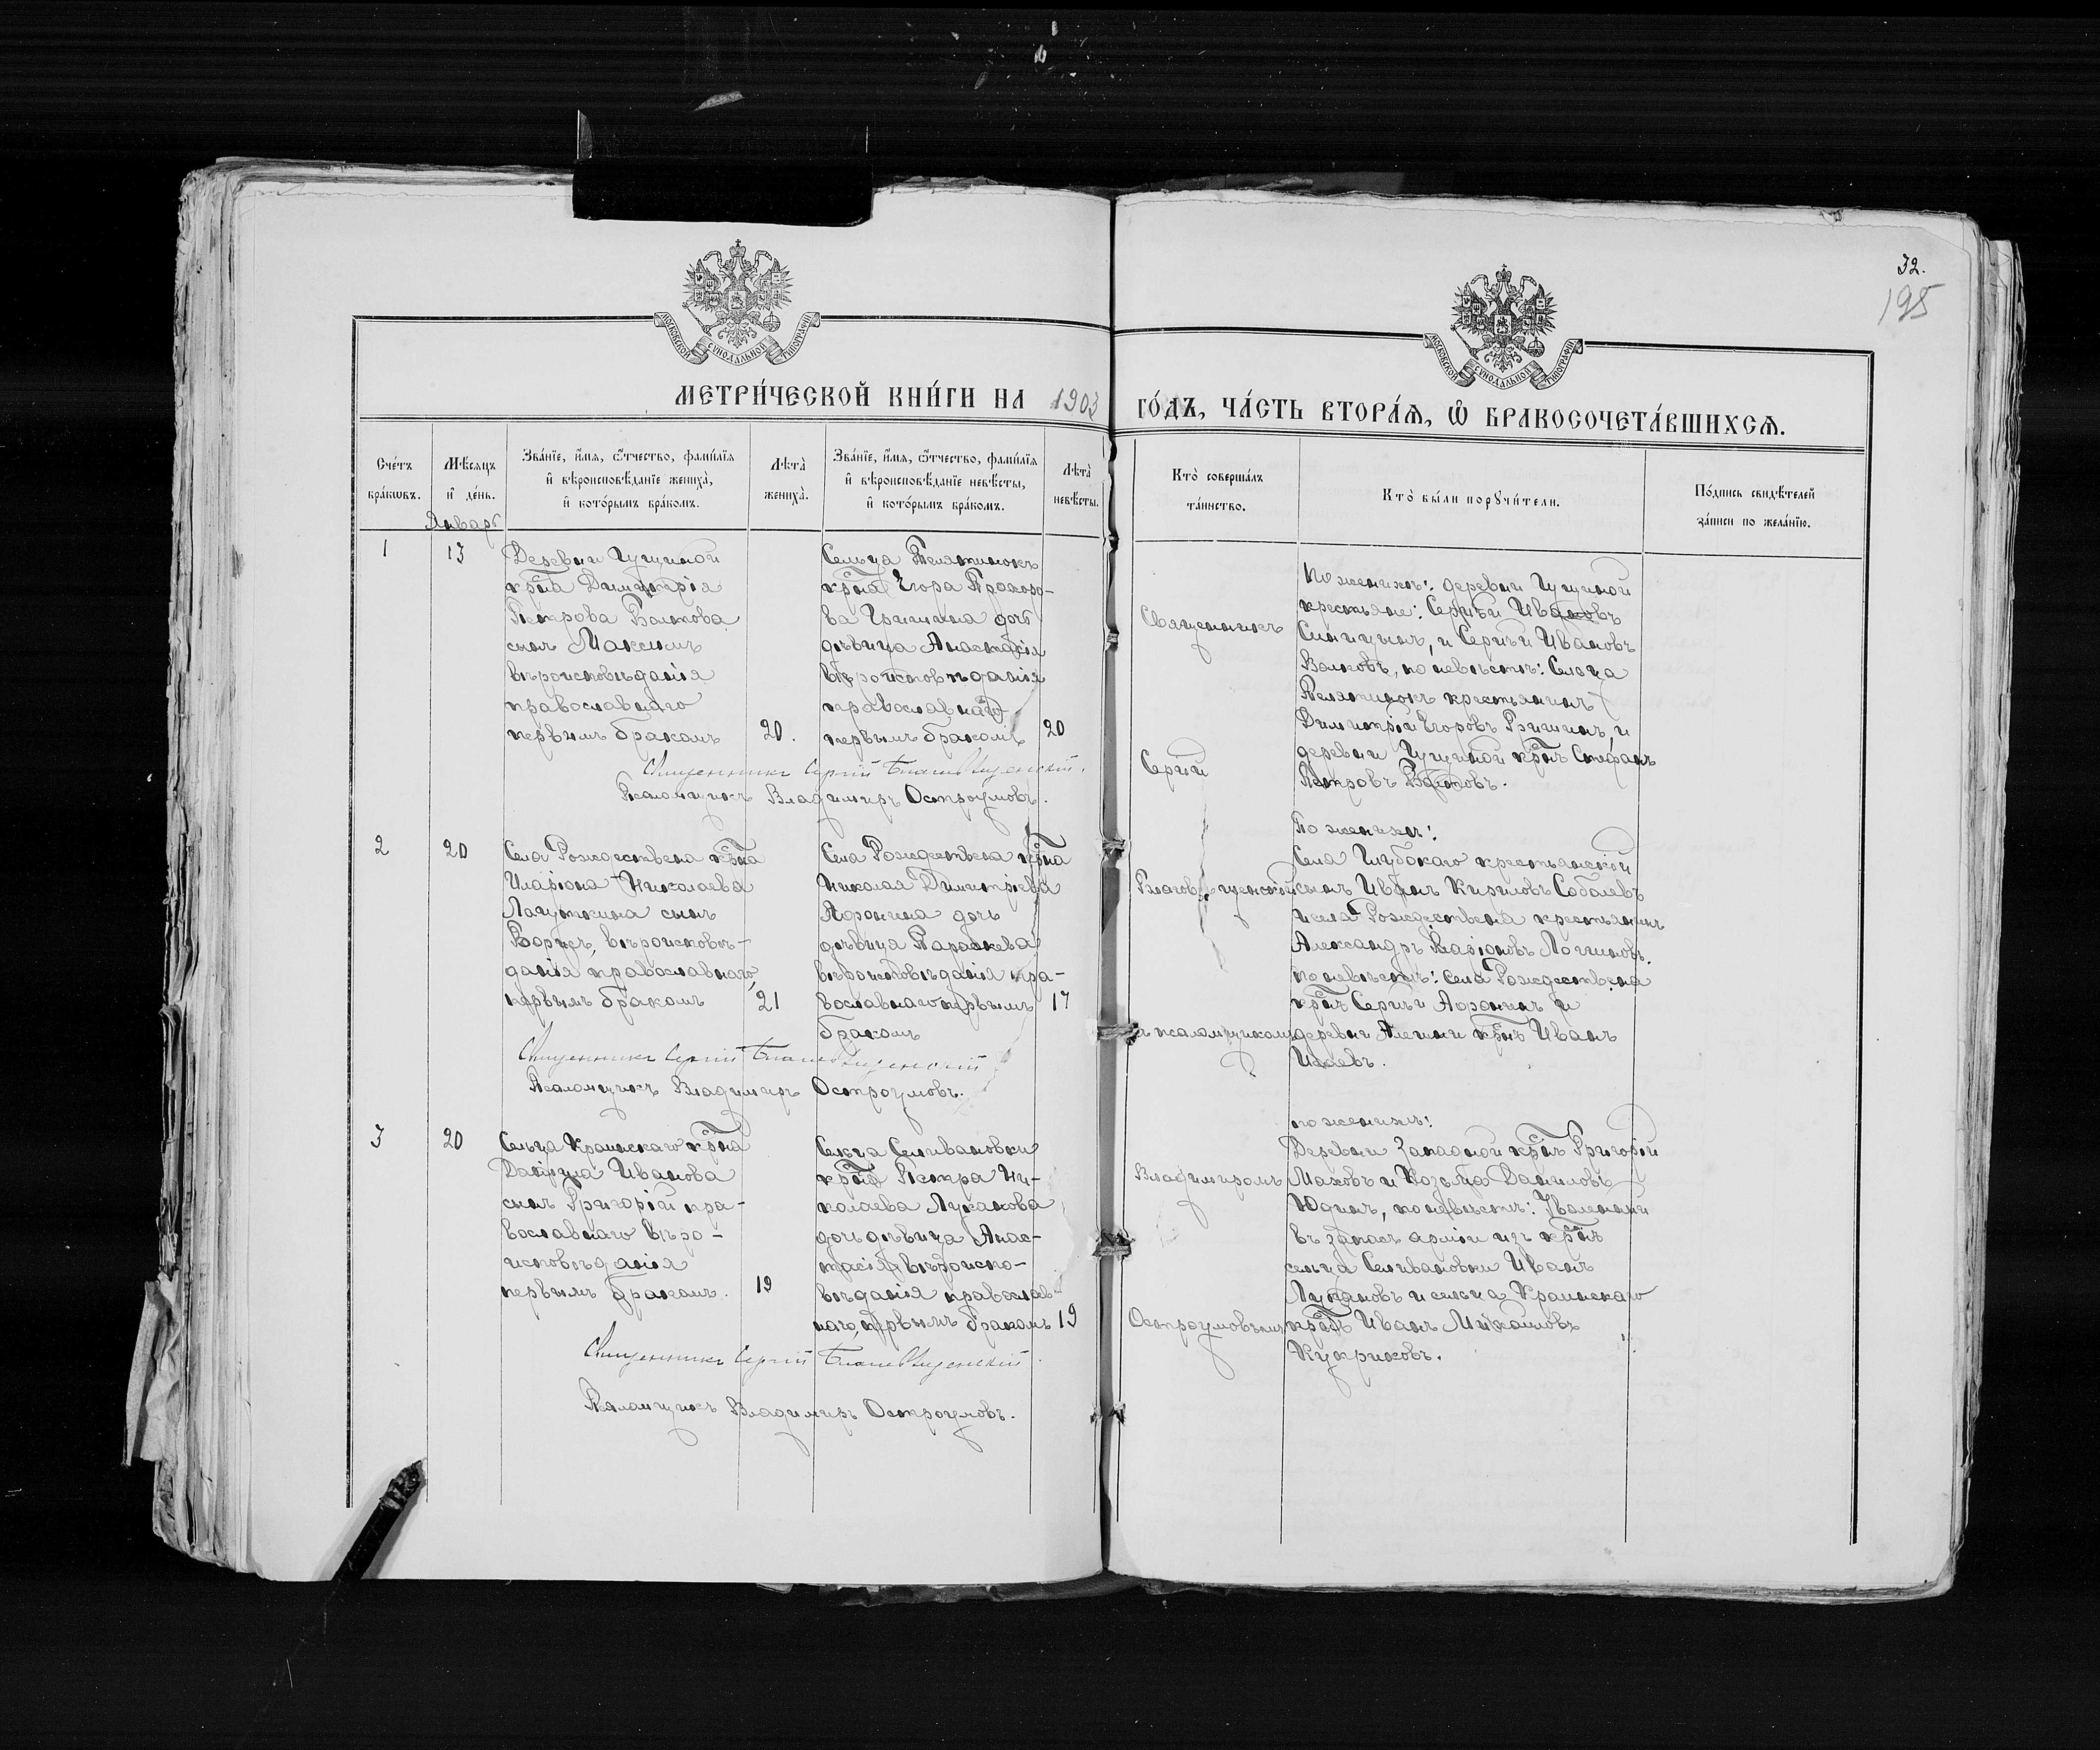 32.
195
МОСКОВСКОЙ СѴНОДАЛЬНОЙ ТИПОГРАФІИ
МОСКОВСКОЙ СѴНОДАЛЬНОЙ ТИПОГРАФІИ
МЕТРИ́ЧЕСКОЙ КНИ́ГИ НА 1903 ГО́ДЪ, ЧА́СТЬ ВТОРА́Ѧ, Ѽ БРАКОСОЧЕТА́ВШИХСѦ.
Сче́тъ
бра́кѡвъ.
Мѣ́сяцъ
и҆ де́нь.
Зва́нїе, и҆́мя, ѻ҆́тчество, фами́лїя
и҆ вѣроисповѣ́данїе жениха̀,
и҆ кото́рымъ бра́комъ.
Лѣта̀
жениха̀.
Зва́нїе, и҆́мя, ѻ҆́тчество, фами́лїя
и҆ вѣроисповѣ́данїе невѣ́сты,
и҆ кото́рымъ бра́комъ.
Лѣта̀
невѣ́сты.
Кто̀ соверша́лъ
та́инство.
Кто̀ бы́ли порꙋчи́тели.
По́дпись свидѣ́телей
за́писи по жела́нїю.
Январь
1
13
Деревни Гущиной
крнa Димитрія
Петрова Болотова
сынъ Максимъ
вѣроисповѣданія
православнаго
первымъ бракомъ
20.
Сельца Телятинокъ
крнa Егора Прохоро-
ва Гришина дочь
дѣвица Анастасія
вѣроисповѣданія
православнаго
первымъ бракомъ
20
Священникъ
Сергій
По женихѣ: деревни Гущиной
крестьяне: Сергѣй Ивановъ
Синицынъ, и Сергѣй Ивановъ
Волковъ, по невѣстѣ: Сельца
Телятинокъ крестьянинъ
Димитрій Егоровъ Гришинъ, и
деревни Гущиной крнъ Стефанъ
Петровъ Болотовъ.
Священникъ Сергій Благовѣщенскій.
Псаломщикъ Владимиръ Остроумовъ.
2
20
Села Рождествена крнa
Иларіона Николаева
сынъ
Борисъ, вѣроисповѣ-
данія православнаго,
первымъ бракомъ
21
Села Рождествена крнa
Николая Димитріева
Афонина дочь
дѣвица Параскева
вѣроисповѣданія пра-
вославнаго первымъ
бракомъ
17
Благовѣщенскій
съ псаломщикомъ
По женихѣ:
Села Глубокаго крестьянскій
сынъ Иванъ Кириловъ Соболевъ
и села Рождествена крестьянинъ
Александръ Иларіоновъ Логиновъ.
по невѣстѣ: села Рождествена
крнъ Сергѣй Афонинъ и
деревни Алешни крнъ Иванъ
Исаевъ.
Священникъ Сергій Благовѣщенскій
Псаломщикъ Владимиръ Остроумовъ.
3
20
Сельца Крапинскаго крнa
Даніила Иванова
сынъ Григорій пра-
вославнаго вѣро-
исповѣданія
первымъ бракомъ.
19
Сельца Селивановки
крнa Петра Ни-
колаева Луканова
дочь дѣвица Анас-
тасія вѣроиспо-
вѣданія православ-
наго, первымъ бракомъ
19
Владимиромъ
Остроумовымъ
по женихѣ:
Деревни Западной крнъ Григорій
Маховъ и Козьма Даниловъ
Юдинъ, по невѣстѣ: Уволенный
въ запасъ арміи изъ крнъ
сельца Селивановки Иванъ
Лукановъ и сельца Крапинскаго
крнъ Иванъ Михайловъ
Кукриковъ.
Священникъ Сергій Благовѣщенскій.
Псаломщикъ Владимиръ Остроумовъ.